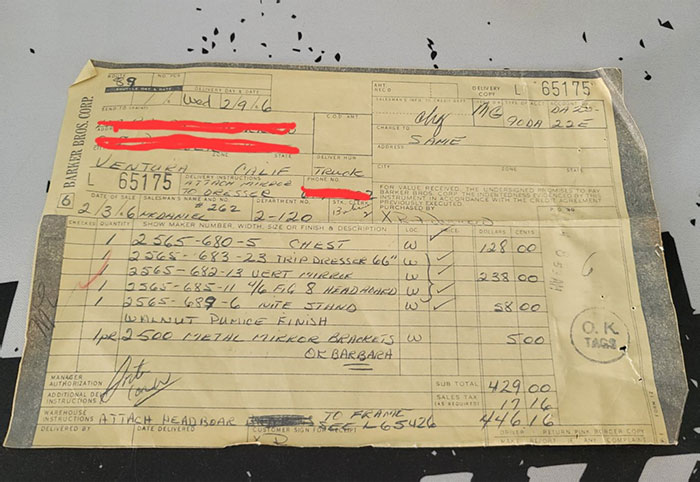 ROUTE NO. PCS
59
DELIVERY DAY & DATE
Wed 2/9/6
DELIVERY COPY L 65175
MG 90DA
22E
C.O.D. AMT.
CHARGE TO
SAME
ADDRESS
ZONE STATE
DELIVER HOW
VENTURA CALIF TRUCK
CITY ZONE STATE
L 65175
DELIVERY INSTRUCTIONS
ATTACH MIRROR
TO DRESSER
PHONE NO.
BARKER BROS. CORP.
FOR VALUE RECEIVED, THE UNDERSIGNED PROMISES TO PAY
BARKER BROS. CORP. THE INDEBTEDNESS EVIDENCED BY THIS
INSTRUMENT IN ACCORDANCE WITH THE CREDIT AGREEMENT
PREVIOUSLY EXECUTED
PURCHASED BY
X
6
DATE OF SALE SALESMAN'S NAME AND NO. DEPARTMENT STK. CLERK
2/3/6 McDANIEL #262 2-120
CHECKED QUANTITY SHOW MAKER NUMBER, WIDTH, SIZE OR FINISH & DESCRIPTION LOC PRICE DOLLARS CENTS
1 2565-680-5 CHEST W 128 00
1 2565-683-23 TRIP DRESSER 66" W
2565-682-13 VERT MIRROR W 238 00
1 2565-685-11 4/6 FIG 8 HEADBOARD W
1 2565-689-6 NITE STAND W 58 00
WALNUT PUMICE FINISH
1 pr 2500 METAL MIRROR BRACKETS W 5 00
OK BARBARA
O.K.
TAGS
MANAGER
AUTHORIZATION
SUB TOTAL 429 00
ADDITIONAL DEL
INSTRUCTIONS
SALES TAX
(AS REQUIRED) 17 16
WAREHOUSE
INSTRUCTIONS ATTACH HEADBOAR TO FRAME
SEE L65426
446 16
DELIVERED BY DATE DELIVERED CUSTOMER SIGN FOR RECEIPT
X